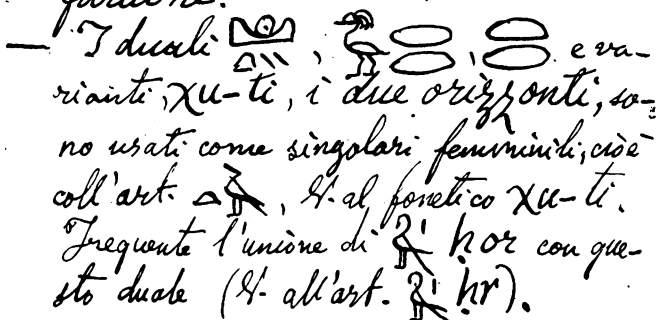 — I duali , , e va-
rianti, χu-ti, i due orizzonti, so-
no usati come singolari femminili, cioè
coll'art. , V. al fonetico χu-ti.
Frequente l'unione di ḥor con que-
sto duale (V. all'art. ḥr).